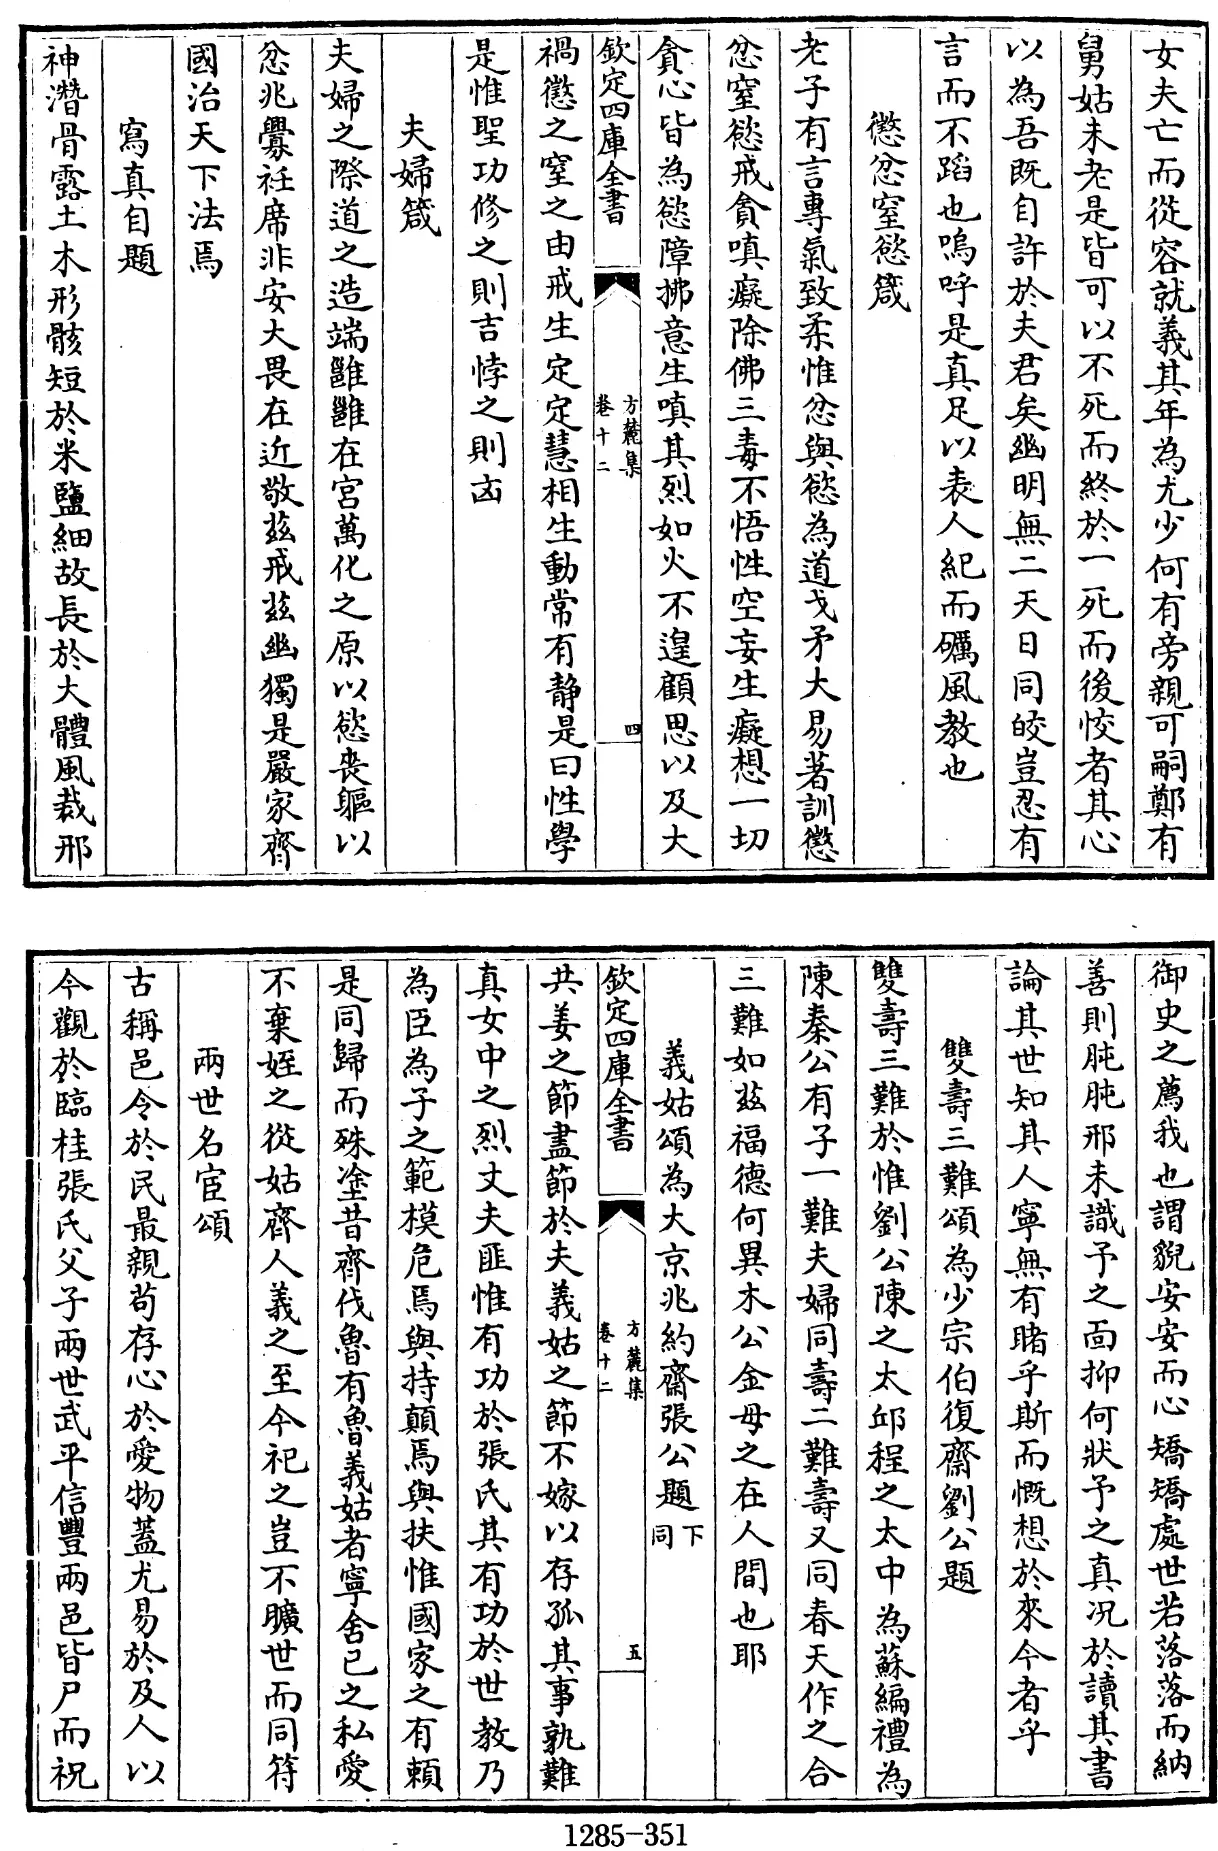 女夫亡而從容就義其年為尤少何有旁親可嗣鄭有
舅姑未老是皆可以不死而終於一死而後恔者其心
以為吾既自許於夫君矣幽明無二天日同皎豈忍有
言而不蹈也嗚呼是真足以表人紀而礪風教也
懲忿窒慾箴
老子有言專氣致柔惟忿與慾為道戈矛大易著訓懲
忿窒慾戒貪嗔癡除佛三毒不悟性空妄生癡想一切
貪心皆為慾障拂意生嗔其烈如火不遑顧思以及大
欽定四庫全書
方麓集
卷十二
四
禍懲之窒之由戒生定定慧相生動常有靜是曰性學
是惟聖功修之則吉悖之則凶
夫婦箴
夫婦之際道之造端雝雝在宮萬化之原以慾喪軀以
忿兆釁衽席非安大畏在近敬兹戒兹幽獨是嚴家齊
國治天下法焉
寫真自題
神潛骨露土木形骸短於米鹽細故長於大體風裁邪
御史之薦我也謂貌安安而心矯矯處世若落落而納
善則肫肫邪未識予之面抑何狀予之真況於讀其書
論其世知其人寧無有睹乎斯而慨想於來今者乎
雙壽三難頌為少宗伯復齋劉公題
雙壽三難於惟劉公陳之太邱程之太中為蘇編禮為
陳秦公有子一難夫婦同壽二難壽又同春天作之合
三難如兹福德何異木公金母之在人間也耶
義姑頌為大京兆約齋張公題下同
欽定四庫全書
方麓集
卷十二
五
共姜之節盡節於夫義姑之節不嫁以存孤其事孰難
真女中之烈丈夫匪惟有功於張氏其有功於世教乃
為臣為子之範模危焉與持顛焉與扶惟國家之有賴
是同歸而殊塗昔齊伐魯有魯義姑者寧舍己之私愛
不棄姪之從姑齊人義之至今祀之豈不曠世而同符
兩世名宦頌
古稱邑令於民最親苟存心於愛物蓋尤易於及人以
今觀於臨桂張氏父子兩世武平信豐兩邑皆尸而祝
1285-351